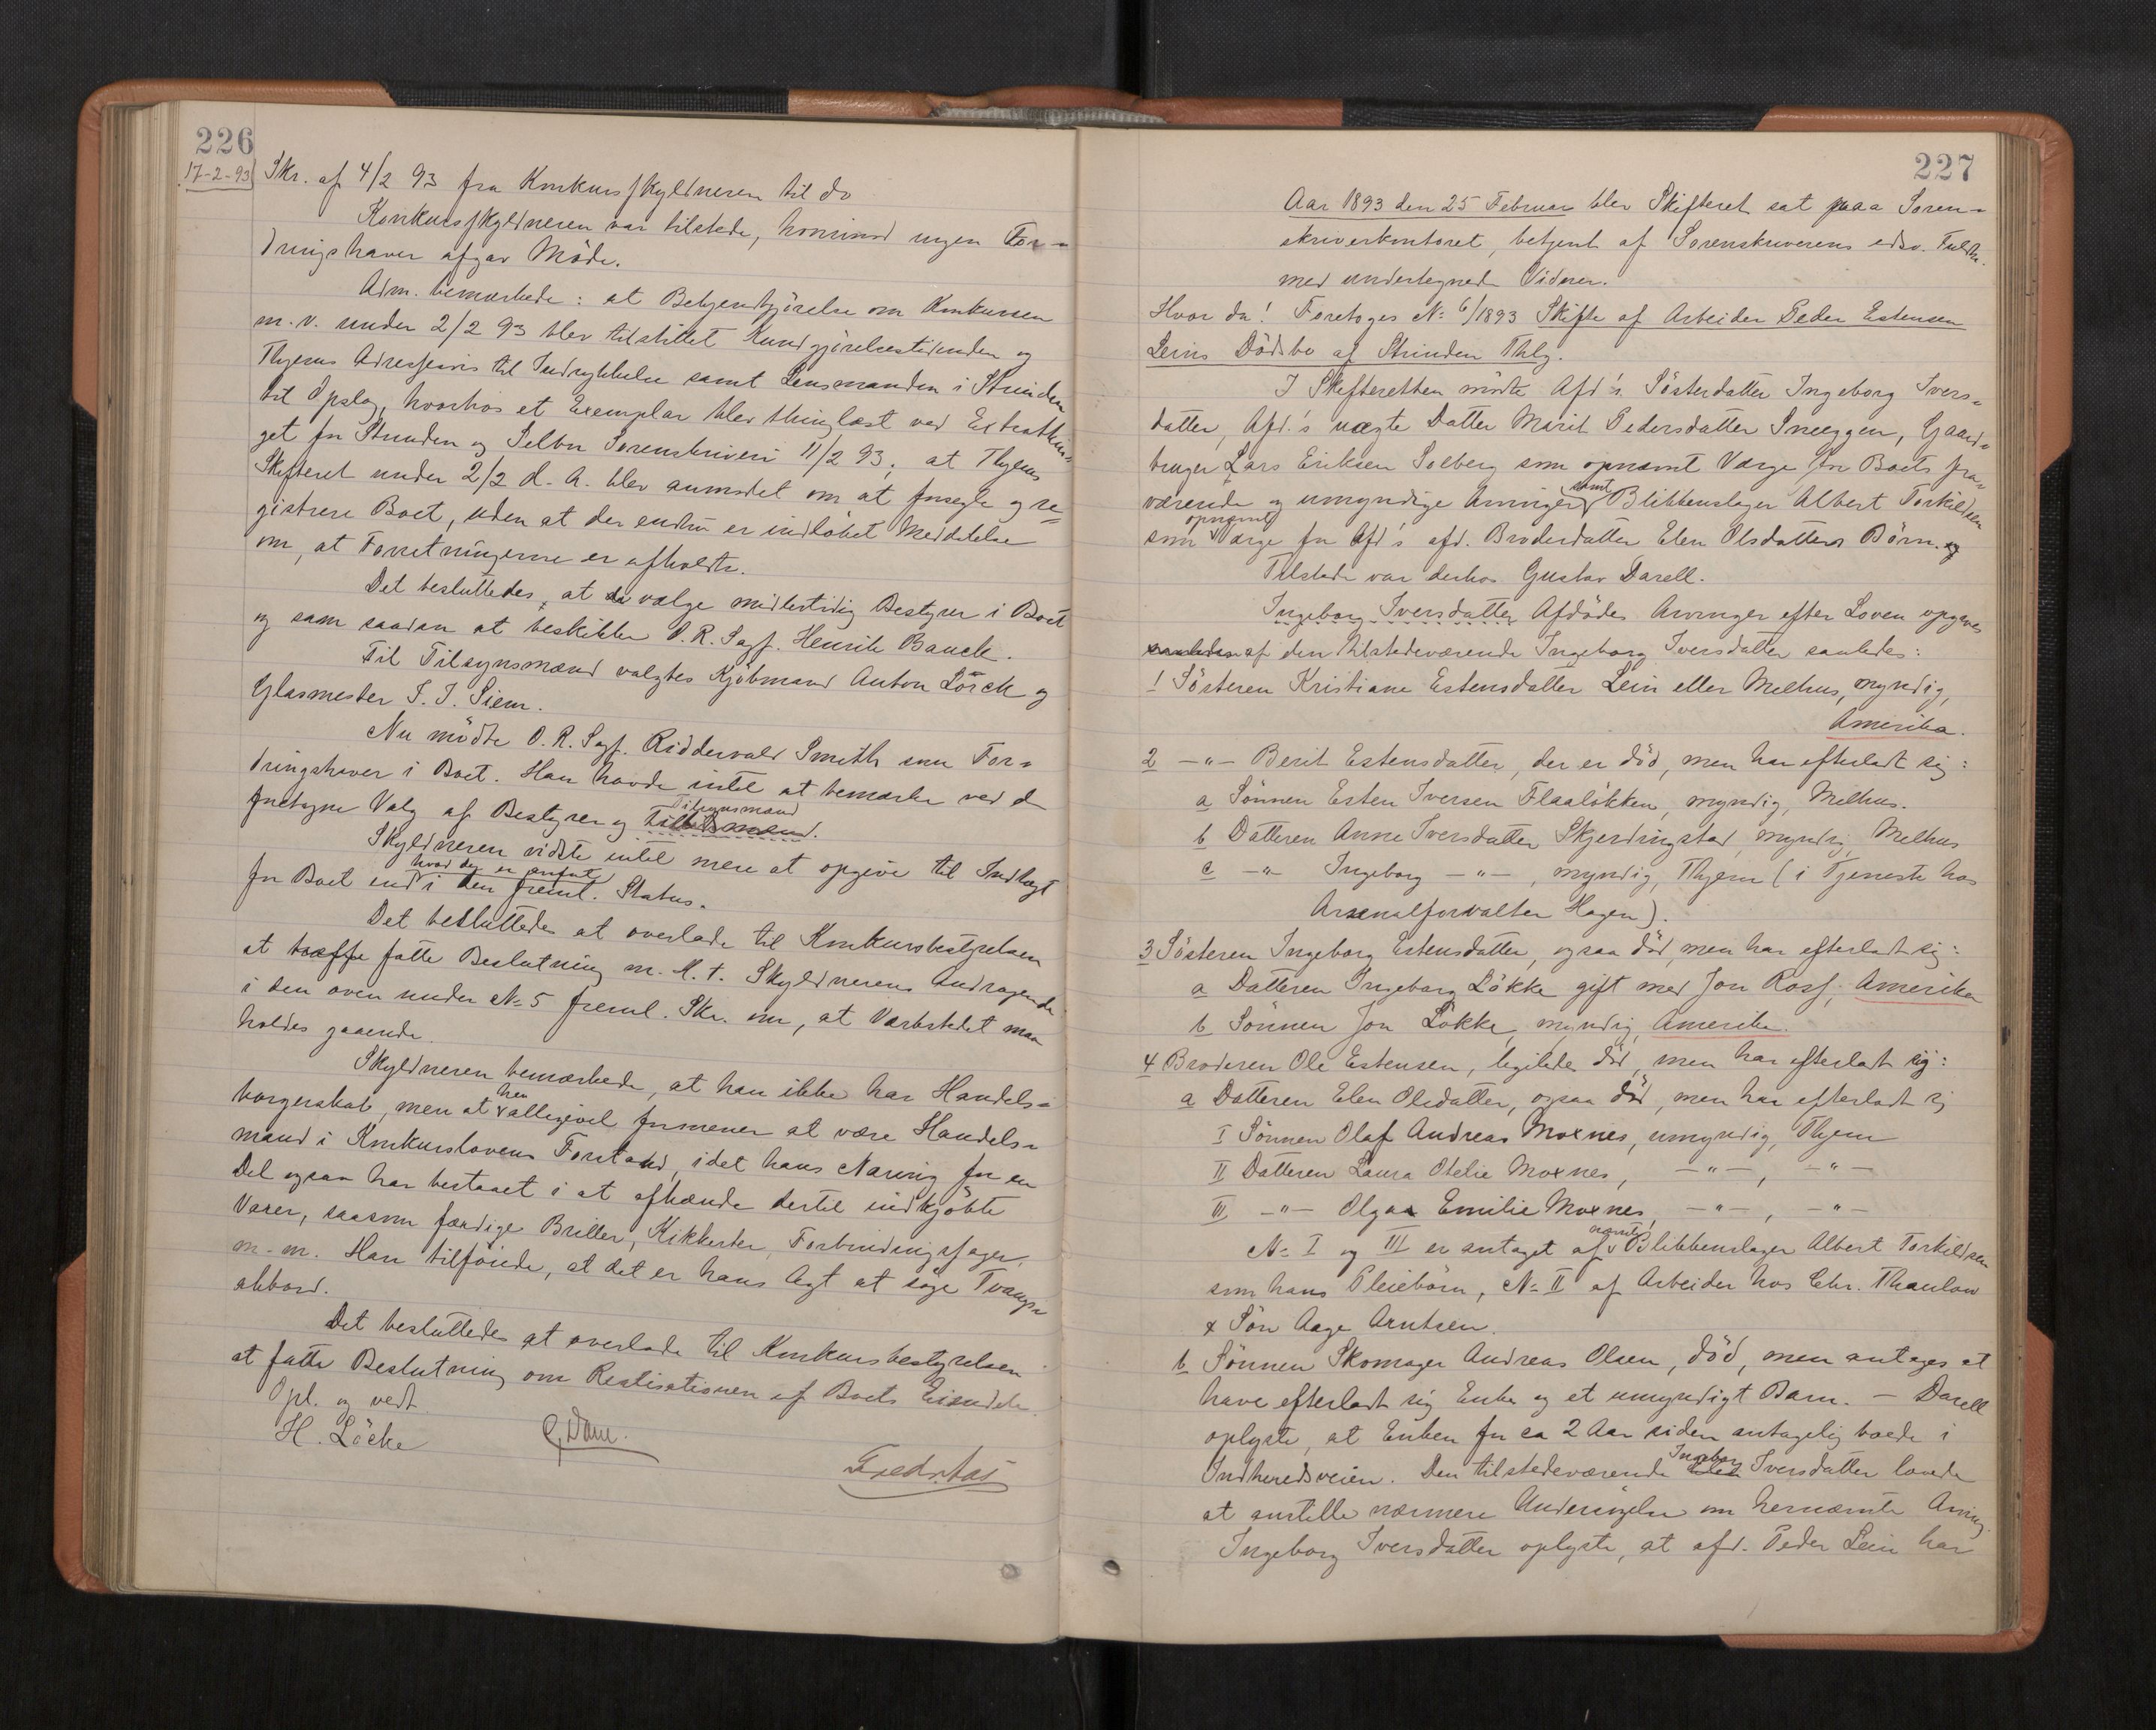 226
17-2-93
Skr. af 4/2 93 fra Konkursskyldneren til do
Konkursskyldneren var tilstede, hvorimod ingen For-
dringshaver afgav Møde.
Adm. bemærkede: at Bekjendtgjörelse om Konkursen
m.v. under 2/2 93 blev tilstillet Kundgjörelsestidenden og
Thjems Adresseavis til Indrykkelse samt Lensmanden i Strinden
til Opslag, hvorhos et Exemplar blev thinglæst ved Extrathin-
get for Strinden og Selbu Sorenskriveri 11/2 93; at Thjems
Skifteret under 2/2 d. A. blev anmodet om at forsegle og re-
gistrere Boet, uden at der endnu er indløbet Meddelelse
om, at Forretningerne er afholdte.
Det besluttedes, at vælge midlertidig Bestyrer i Boet
og som saadan at beskikke O.R. Sagf. Henrik Bauck.
Til Tilsynsmænd valgtes Kjöbmand Anton Lörck og
Glasmester I. J. Siem.
Nu mödte O.R. Sagf. Riddervold Smith som For-
dringshaver i Boet. Han havde intet at bemærke ved d
foretagne Valg af Bestyrer og Tilsynsmænd.
Skyldneren vidste intet mere at opgive til Indtægt
for Boet end hvad der er anført i den freml. Status.
Det besluttedes at overlade til Konkursbestyrelsen
at træffe fatte Beslutning m. H. t. Skyldnerens Andragende
i den oven under No 5 freml. Skr. om, at Værkstedet maa
holdes gaaende.
Skyldneren bemærkede, at han ikke har Handels-
borgerskab, men at han alligevel formener at være Handels-
mand i Konkurslovens Forstand, idet hans Næring for en
Del ogsaa har bestaaet i at afhænde dertil indkjöbte
Varer, saasom færdige Briller, Kikkerter, Forbindingssager
m.m. Han tilföiede, at det er hans Agt at söge Tvangs-
akkord.
Det besluttedes at overlade til Konkursbestyrelsen
at fatte Beslutning om Realisationen af Boets Eiendele.
Opl. og vedt.
H. Löcke
227
Aar 1893 den 25 Februar blev Skifteret sat paa Soren-
skriverkontoret, betjent af Sorenskriverens edsv. Fuldm.
med undertegnede Vidner.
Hvor da! Foretoges No 6/1893 Skifte af Arbeider Peder Estensen
Leins Dödsbo af Strinden Thlg.
I Skifteretten mödte Afd's. Sösterdatter Ingeborg Ivers-
datter, Afd.'s uægte Datter Marit Pedersdatter Sneeggen, Gaard-
bruger Lars Eriksen Solberg som opnævnt Værge for Boets fra-
værende og umyndige Arvinger samt Blikkenslager Albert Torkildsen
som opnævnt Værge for Afd's afd. Broderdatter Elen Olsdatters Börn.
Tilstede var derhos Gustav Darell.
Ingeborg Iversdatter Afdödes Arvinger efter Loven opgaves
saaledes af den tilstedeværende Ingeborg Iversdatter saaledes:
1 Sösteren Kristiane Estensdatter Lein eller Melhus, myndig,
Amerika.
2 -"- Berit Estensdatter, der er död, men har efterladt sig:
a Sönnen Esten Iversen Flaalökken, myndig, Melhus.
b Datteren Anne Iversdatter Skjerdingstad, myndig, Melhus
c -"- Ingeborg -"-, myndig, Thjem (i Tjeneste hos
Arsenalforvalter Hagen).
3 Sösteren Ingeborg Estensdatter, ogsaa död, men har efterladt sig:
a Datteren Ingeborg Lökke gift med Jon Ross, Amerika
b Sönnen Jon Lökke, myndig, Amerika.
4 Broderen Ole Estensen, ligeledes död, men har efterladt sig:
a Datteren Elen Olsdatter, ogsaa död, men har efterladt sig
I Sönnen Olaf Andreas Moxnes, umyndig, Thjem
II Datteren Laura Otelie Moxnes, -"-, -"-
III -"- Olga Emilie Moxnes, -"-, -"-
No I og III er antaget af nævnte Blikkenslager Albert Torkildsen
som hans Pleiebörn, No II af Arbeider hos Chr. Thaulow
& Sön Aage Arntsen.
b Sönnen Skomager Andreas Olsen, död, men antages at
have efterladt sig Enke og et umyndigt Barn. - Darell
oplyste, at Enken for ca 2 Aar siden antagelig boede i
Indheredsveien. Den tilstedeværende Ingeborg Iversdatter lovede
at anstille nærmere Undersögelse om hernævnte Arving.
Ingeborg Iversdatter oplyste, at afd. Peder Lein har